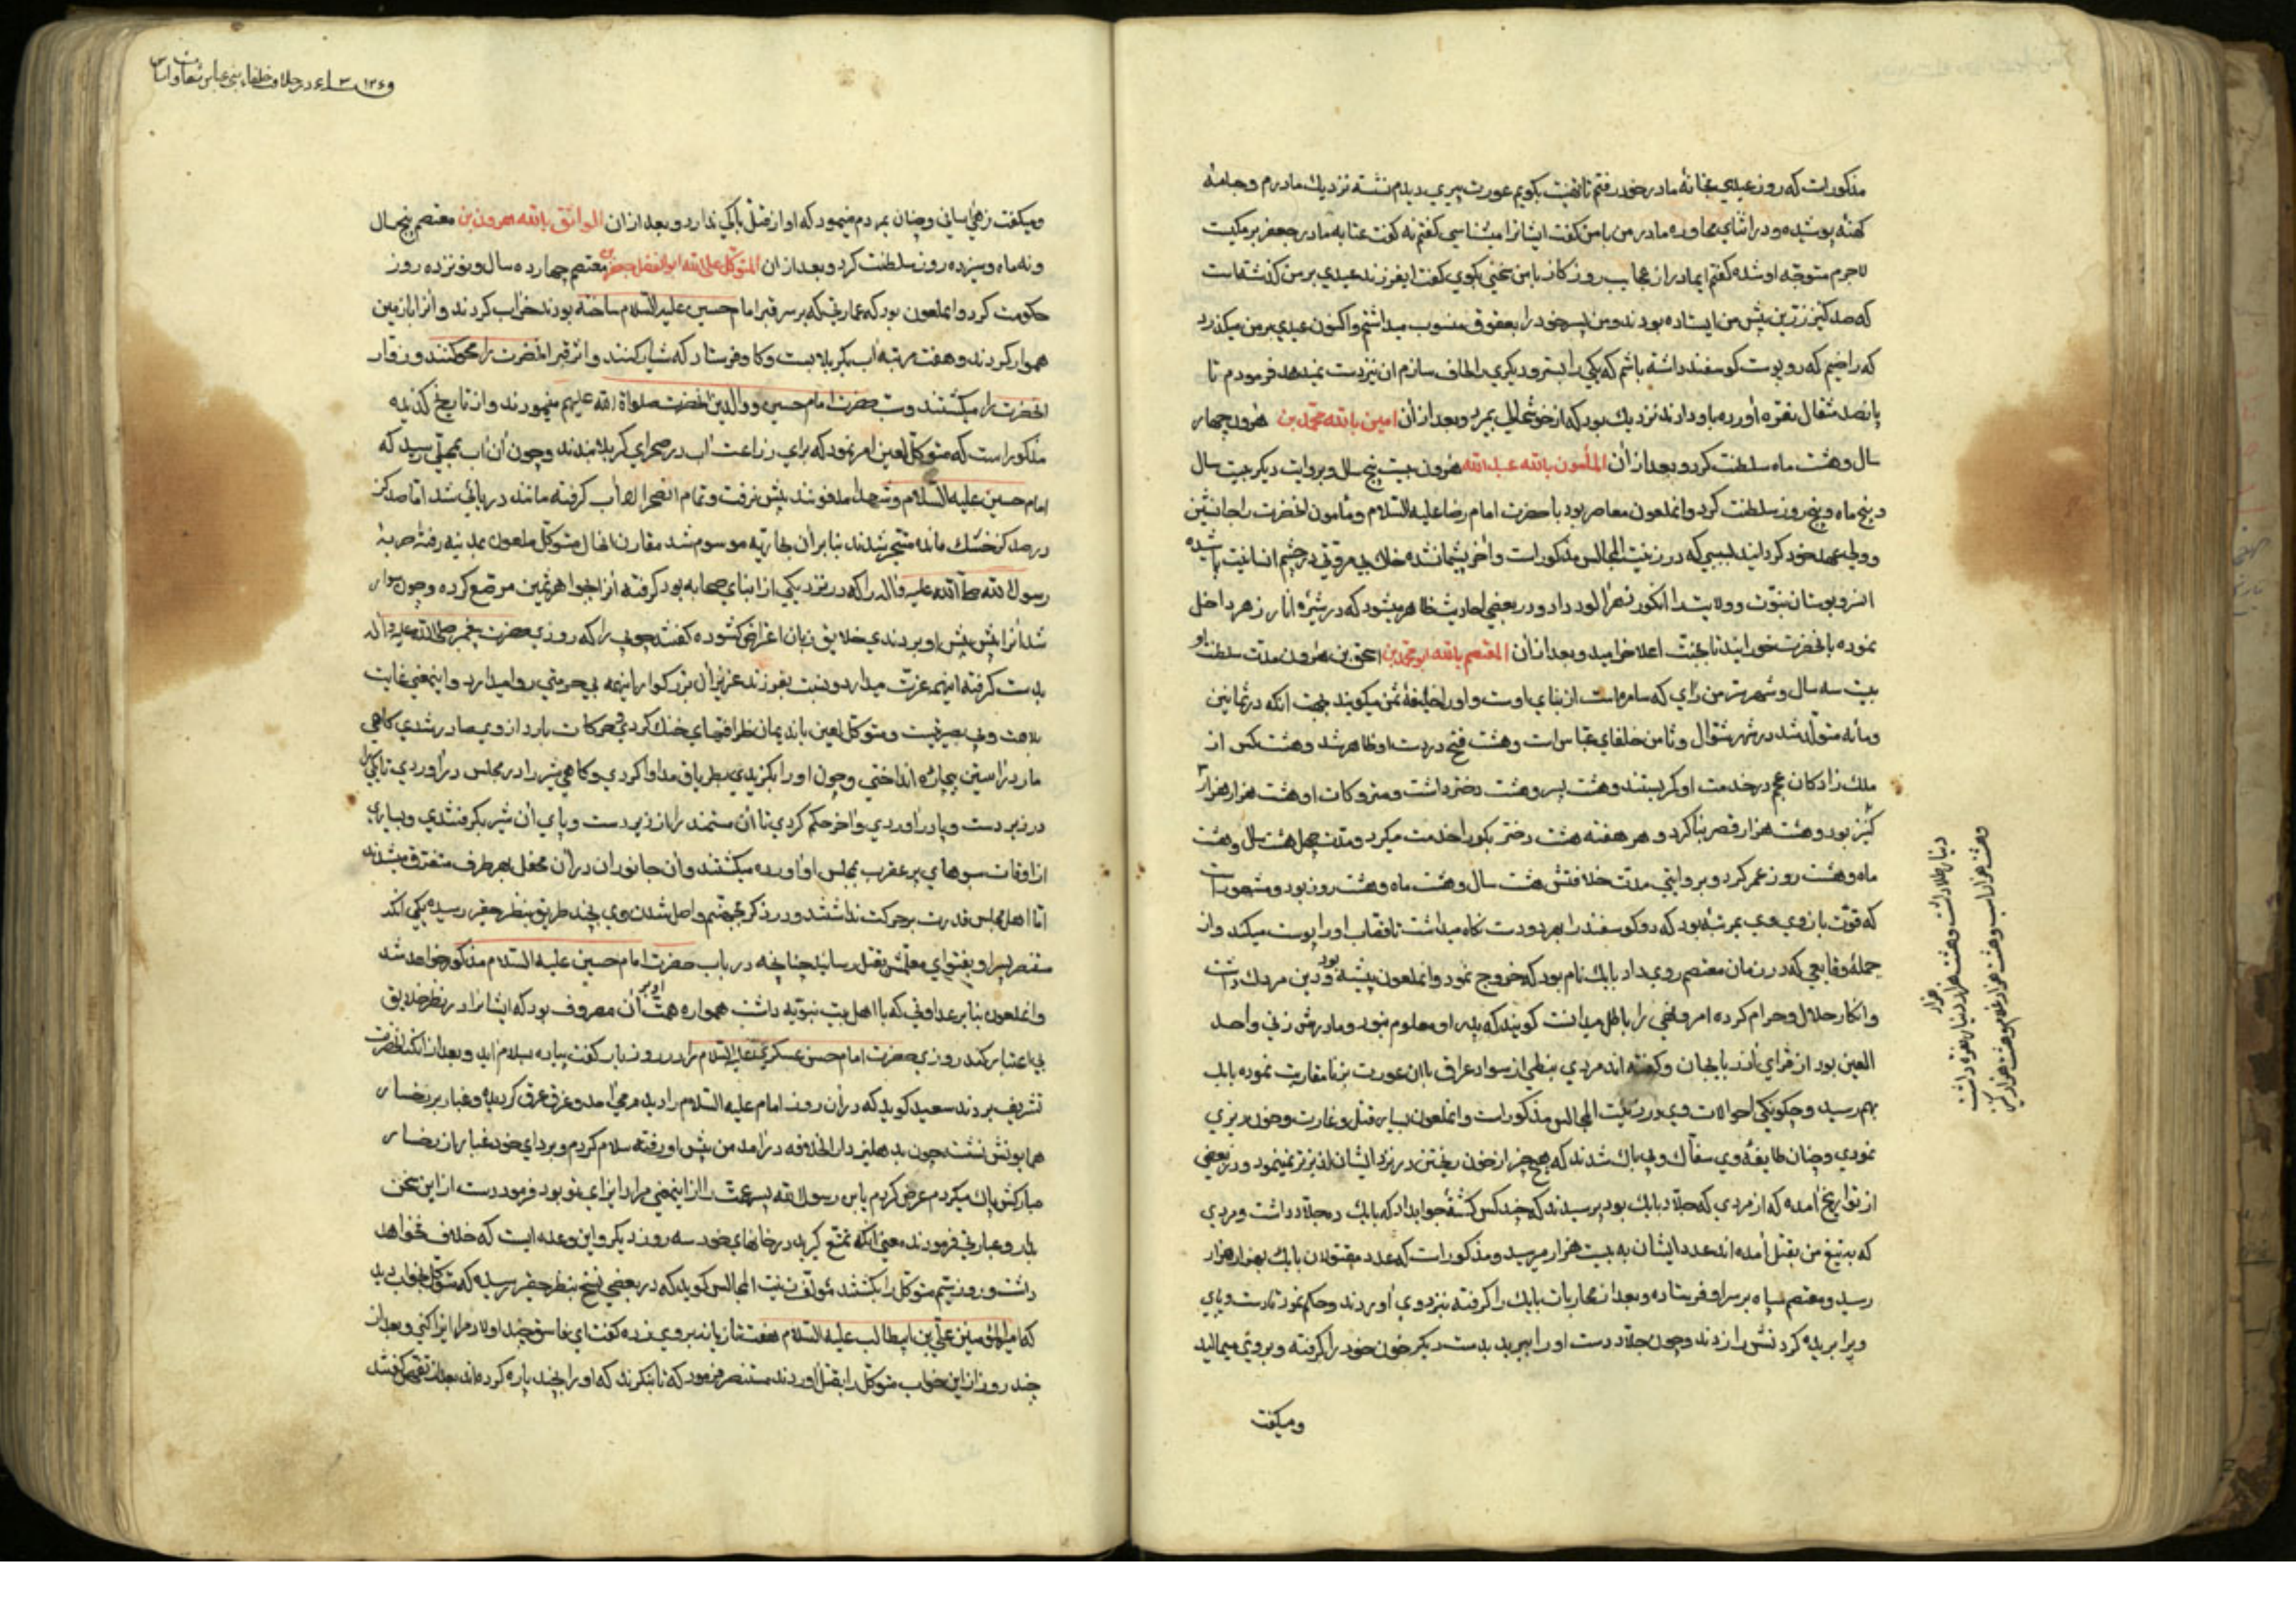 مذکورات که روز عیدی بخانه مادر خود رفتم تا تهنیت بکویم عورت پیری دیدم نشسته نزدیك مادرم و جامهٔ
کهنه پوشیده و در اثنای محاوره مادر من با من کفت ایشانرا میشناسی کفتم نه کفت عتابه مادر جعفر برمکیست
لاجرم متوجه او شده کفتم ایمادر از عجایب روزکار با من سخنی بکوی کفت ایفرزند عیدی بر من کذشته است
که صد کنیز زرین پیش من ایستاده بودند و من پسر خود را بعقوق منسوب میداشتم و اکنون عیدی بر من میکذرد
که راضیم که دو پوست کوسفند داشته باشم که یکی را بستر و دیکری را لحاف سازم ان نیز دست نمیدهد فرمودم تا
پانصد مثقال نقره آورده باو دادند نزدیك بود که از خوشحالی بمیرد و بعد از ان امین بالله محمد بن هرون چهار
سال و هشت ماه سلطنت کرد و بعد از ان المأمون بالله عبد الله هرون بیست پنج سال و بروایت دیکر بیست سال
و پنج ماه و پنج روز سلطنت کرد و انملعون معاصر بود با حضرت امام رضا علیه السلام و مأمون انحضرت را جانشین
و ولی عهد خود کردانید بسببی که در زینت المجالس مذکورات و اخر پشیمان شده خاك بی مروتی در چشم انسانیت پاشیده
انسرو بوستان نبوت و ولایت را انکور زهرآلود داد و در بعضی احادیث ظاهر میشود که در شیره انار زهر داخل
نموده بانحضرت خورانید تا بجنت اعلا خرامید و بعد از ان المعتصم بالله ابو محمد بن اسحق بن هرون مدت سلطنت او
بیست سه سال و شهر سر من رای که سامره است از بنای اوست و او را خلیفهٔ مثمن میکویند بجهت انکه در ثمانین
و مأنه متولد شد در شهر شوال و ثامن خلفای عباس است و هشت فتح در دست او ظاهر شد و هشت کس از
ملك زادکان عجم در خدمت او کمر بستند و هشت پسر و هشت دختر داشت و متروکات او هشت هزار هزار
کنیز بود و هشت هزار قصر بنا کرد و هر هفته هشت دختر بکر را خدمت میکرد و مدت چهل هشت سال و هشت
ماه و هشت روز عمر کرد و بروایتی مدت خلافتش هشت سال و هشت ماه و هشت روز بود و مشهور است
که قوت بازوی وی بمرتبهٔ بود که دو کوسفند را بهر دو دست نکاه میداشت تا قصاب او را پوست میکند و از
جملهٔ وقایعی که در زمان معتصم روی داد بابك نام بود که خروج نمود و انملعون پیشه ودین مزدك داشت
و انکار حلال و حرام کرده امر و نهی را باطل میدانست کویند که پدر او معلوم نبود و مادرش زنی واحد
العین بود از قرای آذربایجان و کفته اند مردی نبطی از سواد عراق با ان عورت بزنا مقاربت نموده بابك
بهم رسید و چکونکی احوالات وی در زینت المجالس مذکورات و انملعون بسیار قتل و غارت و خون ریزی
نمودی و چنان طایفهٔ وی سفاك و بی باك شدند که هیچ چیز از خون ریختن در نزد ایشان لذیذتر نمینمود و در بعضی
از تواریخ آمده که از مردی که جلاد بابك بود پرسیدند که چند کس کشتهٔ جواب داد که بابك ده جلاد داشت و مردی
که به تیغ من بقتل آمده اند عدد ایشان به بیست هزار میرسید و مذکورات که عدد مقتولان بابك بهزار هزار
رسید و معتصم سپاه بر سر او فرستاده و بعد از محاربات بابك را کرفته نزد وی آوردند و حکم نمود تا دست و پای
ویرا بریده کردنش را زدند و چون جلاد دست او را ببرید بدست دیکر خون خود را کرفته و بر روی میمالید
و میکفت
دینار طلا داشت و هشت هزار دینار نقره داشت
و هشت هزار اسب و هشت هزار غلام و هشت هزار کنیز
و میکفت زهی آسانی و چنان بمردم مینمود که او از قتل باکی ندارد و بعد از ان الواثق بالله هرون بن معتصم پنج سال
و نه ماه و سیزده روز سلطنت کرد و بعد از ان المتوکل علی الله ابو الفضل جعفر بن معتصم چهارده سال و نو نزده روز
حکومت کرد و انملعون بود که عمارتی که بر سر قبر امام حسین علیه السلام ساخته بودند خراب کردند و آنرا بازمین
هموار کردند و هفت مرتبه آب بکربلا بست و کاو فرستاد که شیار کنند و اثر قبر انحضرت را محو کنند و زوار
انحضرت را میکشتند و سب حضرت امام حسین و والدین انحضرت صلواة الله علیهم مینمودند و از تاریخ کذیده
مذکور است که متوکل لعین امر نمود که برای زراعت آب در صحرای کربلا بندند و چون آن آب بمحلی رسید که
امام حسین علیه السلام و شهدا مدفونند پیش نرفت و تمام انصحرا را آب کرفته مانند دریائی شد اما صد کز
در صد کز خشك مانده متحیر شدند بنابر آن بحایریه موسوم شد مقارن انحال متوکل ملعون بمدینه رفته حربهٔ
رسول الله صلی الله علیه و اله را که در نزد یکی از ابنای صحابه بود کرفته آنرا بجواهر ثمین مرصع کرده و چون سوار
شد آنرا پیش پیش او بردندی خلایق زبان اعتراض کشوده کفتند چوبی را که روزی حضرت پیغمبر صلی الله علیه و آله
بدست کرفته اینهمه عزت میدارد و نسبت بفرزند عزیز آن بزرکوار اینهمه بی حرمتی روا میدارد و اینمعنی غایت
بلاهت و بی بصیرتیست و متوکل لعین باندیمان ظرافتهای خنك کردی و حرکات بارد از وی صادر شدی کاهی
مار در آستین بیچارهٔ انداختی و چون او را بکزیدی بتریاق مداوا کردی و کاهی شیر را در مجلس در آوردی تا یکی را
در زیر دست و پا در آوردی و آخر حکم کردی تا آن مستمند را از زیر دست و پای آن شیر بکرفتندی و بسیاری
از اوقات سبوهای پر عقرب بمجلس او آورده میکشتند و آن جانوران در آن محفل بهر طرف متفرق میشدند
اما اهل مجلس قدرت بر حرکت نداشتند و در ذکر بجهنم واصل شدن وی بچند طریق بنظر حقیر رسیده یکی انکه
منتصر پسر او بفتوای معلمش بقتل رسانید چنانچه در باب حضرت امام حسین علیه السلام مذکور خواهد شد
و انملعون بنابر عداوتی که با اهل بیت نبویه داشت همواره همت او بر آن مصروف بود که ایشانرا در نظر خلایق
بی اعتبار کند روزی حضرت امام حسن عسکری علیه السلام را در روز باب کفت پیاده بسلام آید و بعد از انکه انحضرت
تشریف بردند سعید کوید که در آن روز امام علیه السلام را دیدم می آمد و عرق عرق کردیده و غبار بر رخسار
همایونش نشسته چون بدهلیز دار الخلافه در آمد من پیش او رفته سلام کردم و بردای خود غبار از رخسار
مبارکش پاك میکردم عرض کردم یابن رسول الله پسر عمت را از اینمعنی مراد ایزای تو بود فرمود دست از این سخن
بدار و عبارتی فرمودند معنی انکه تمتع کیرید در خانهای خود سه روز دیکر و این وعده ایست که خلاف نخواهد
داشت و روز سیم متوکل را بکشتند مؤلف زینت المجالس کوید که در بعضی نسخ بنظر حقیر رسیده که متوکل بخواب دید
که امیر المؤمنین علی بن ابیطالب علیه السلام هفت تازیانه بر وی زده کفت ای فاسق چند اولاد مرا ایزا کنی و بعد از
چند روز از این خواب متوکل را بقتل آوردند مستنصر فرمود که تا بنکرند که او را بچند پاره کرده اند بعد از تفحص کفتند